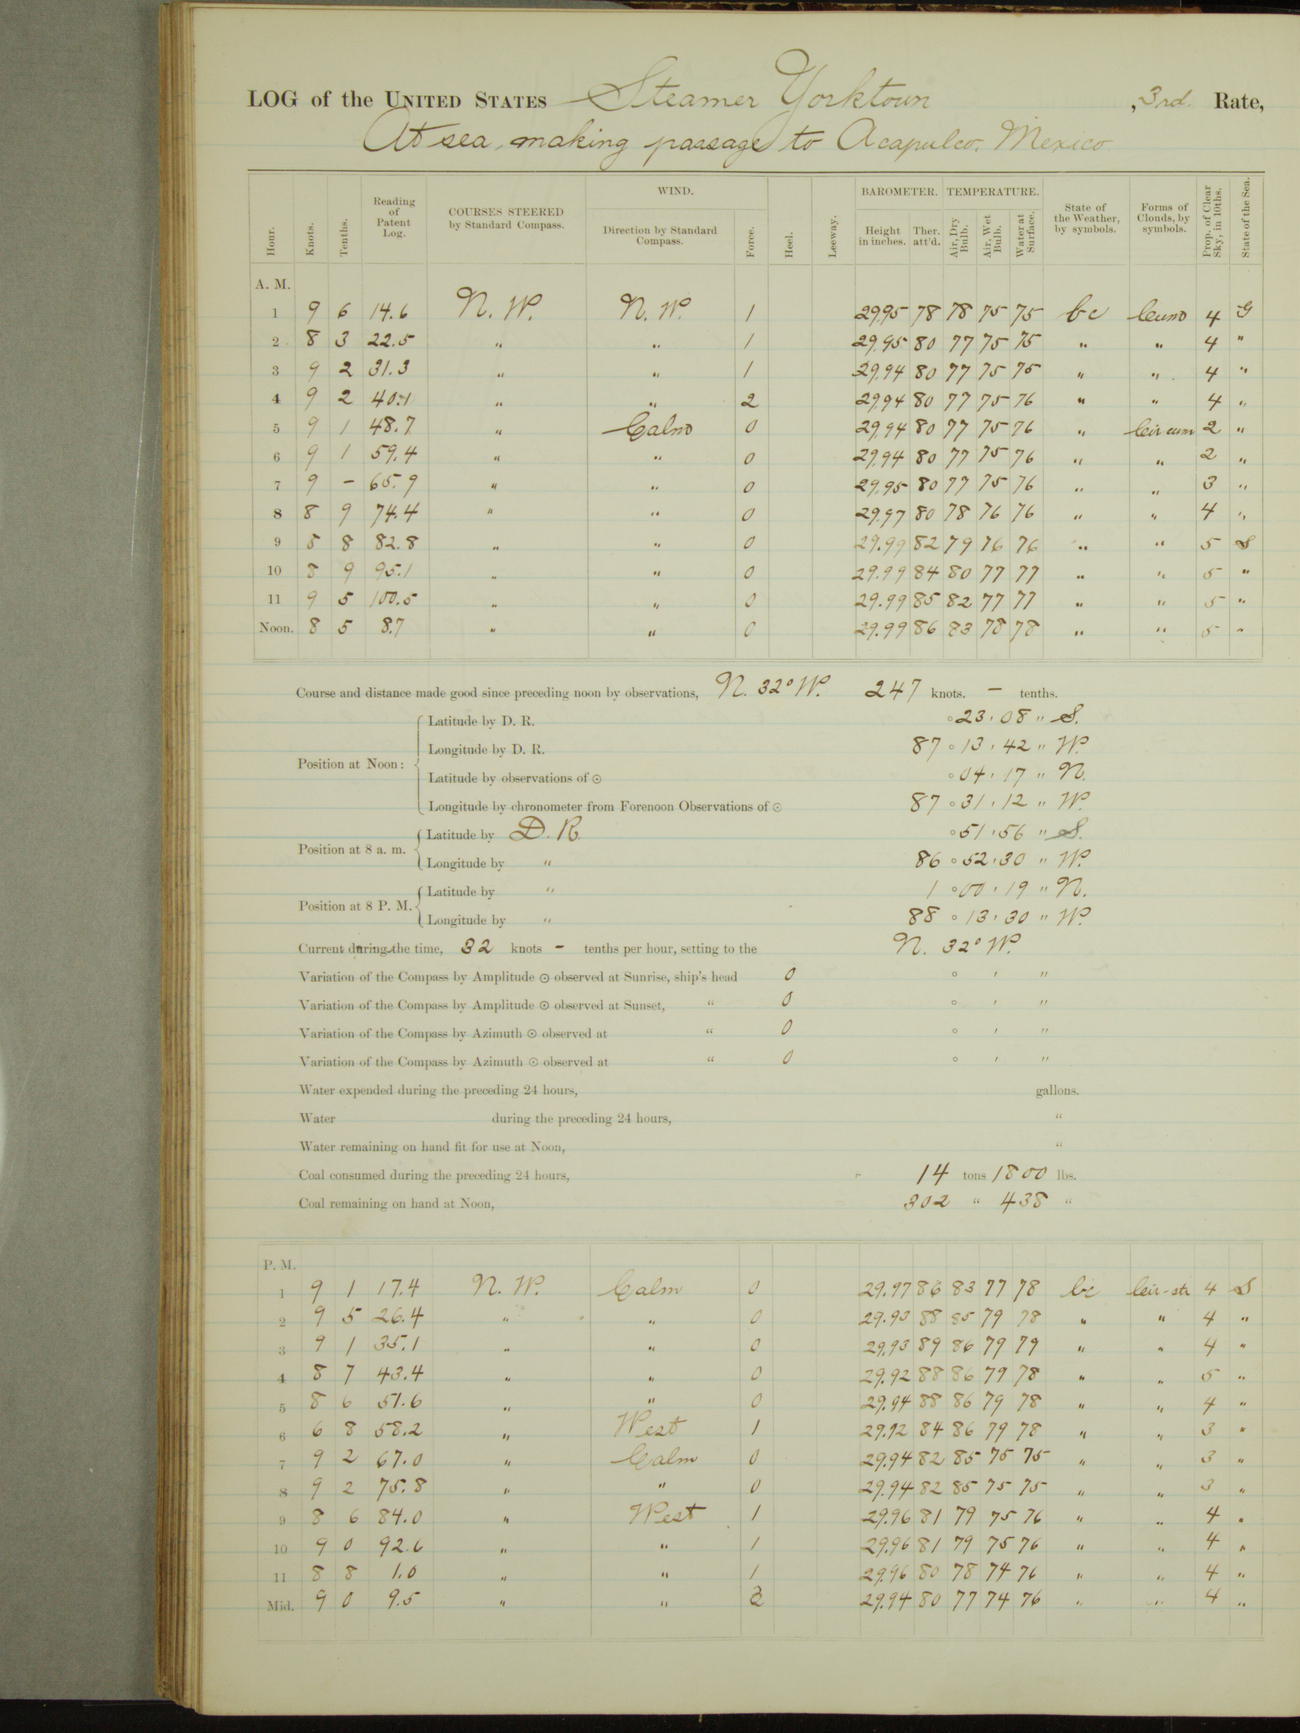 LOG of the UNITED STATES Steamer Yorktown, 3rd. Rate,
At sea, making passage to Acapulco, Mexico
WIND. BAROMETER. TEMPERATURE.
Hour. Knots. Tenths. Reading of Patent Log. COURSES STEERED by Standard Compass. Direction by Standard Compass. Force. Heel. Leeway. Height in inches. Ther. att'd. Air, Dry Bulb. Air, Wet Bulb. Water at Surface. State of the Weather, by symbols. Forms of Clouds, by symbols. Prop. of Clear Sky, in 10ths. State of the Sea.
A. M.
1 9 6 14.6 N. W. N. W. 1 29.95 78 78 75 75 bc Cum 4 G
2 8 3 22.5 " " 1 29.95 80 77 75 75 " " 4 "
3 9 2 31.3 " " 1 29.94 80 77 75 75 " " 4 "
4 9 2 40.1 " " 2 29.94 80 77 75 76 " " 4 "
5 9 1 48.7 " Calm 0 29.94 80 77 75 76 " Cir cum 2 "
6 9 1 59.4 " " 0 29.94 80 77 75 76 " " 2 "
7 9 – 65.9 " " 0 29.95 80 77 75 76 " " 3 "
8 8 9 74.4 " " 0 29.97 80 78 76 76 " " 4 "
9 8 8 82.8 " " 0 29.99 82 79 76 76 " " 5 S
10 8 9 95.1 " " 0 29.99 84 80 77 77 " " 5 "
11 9 5 100.5 " " 0 29.99 85 82 77 77 " " 5 "
Noon. 8 5 8.7 " " 0 29.99 86 83 78 78 " " 5 "
Course and distance made good since preceding noon by observations, N. 32° W. 247 knots. – tenths.
Latitude by D. R. ° 23 ' 08 " S.
Longitude by D. R. 87 ° 13 ' 42 " W.
Position at Noon:
Latitude by observations of ☉ ° 04 ' 17 " N.
Longitude by chronometer from Forenoon Observations of ☉ 87 ° 31 ' 12 " W.
Latitude by D. R. ° 51 ' 56 " S.
Position at 8 a. m.
Longitude by " 86 ° 52 ' 30 " W.
Latitude by " 1 ° 00 ' 19 " N.
Position at 8 P. M.
Longitude by " 88 ° 13 ' 30 " W.
Current during the time, 32 knots – tenths per hour, setting to the N. 32° W.
Variation of the Compass by Amplitude ☉ observed at Sunrise, ship's head 0 ° ' "
Variation of the Compass by Amplitude ☉ observed at Sunset, " 0 ° ' "
Variation of the Compass by Azimuth ☉ observed at " 0 ° ' "
Variation of the Compass by Azimuth ☉ observed at " 0 ° ' "
Water expended during the preceding 24 hours, gallons.
Water during the preceding 24 hours, "
Water remaining on hand fit for use at Noon, "
Coal consumed during the preceding 24 hours, 14 tons 1800 lbs.
Coal remaining on hand at Noon, 302 " 438 "
P. M.
1 9 1 17.4 N. W. Calm 0 29.97 86 83 77 78 bc Cir-str 4 S
2 9 5 26.4 " " 0 29.93 88 85 79 78 " " 4 "
3 9 1 35.1 " " 0 29.93 89 86 79 79 " " 4 "
4 8 7 43.4 " " 0 29.92 88 86 79 78 " " 5 "
5 8 6 51.6 " " 0 29.94 88 86 79 78 " " 4 "
6 6 8 58.2 " West 1 29.92 84 86 79 78 " " 3 "
7 9 2 67.0 " Calm 0 29.94 82 85 75 75 " " 3 "
8 9 2 75.8 " " 0 29.94 82 85 75 75 " " 3 "
9 8 6 84.0 " West 1 29.96 81 79 75 76 " " 4 "
10 9 0 92.6 " " 1 29.96 81 79 75 76 " " 4 "
11 8 8 1.0 " " 1 29.96 80 78 74 76 " " 4 "
Mid. 9 0 9.5 " " 2 29.94 80 77 74 76 " " 4 "